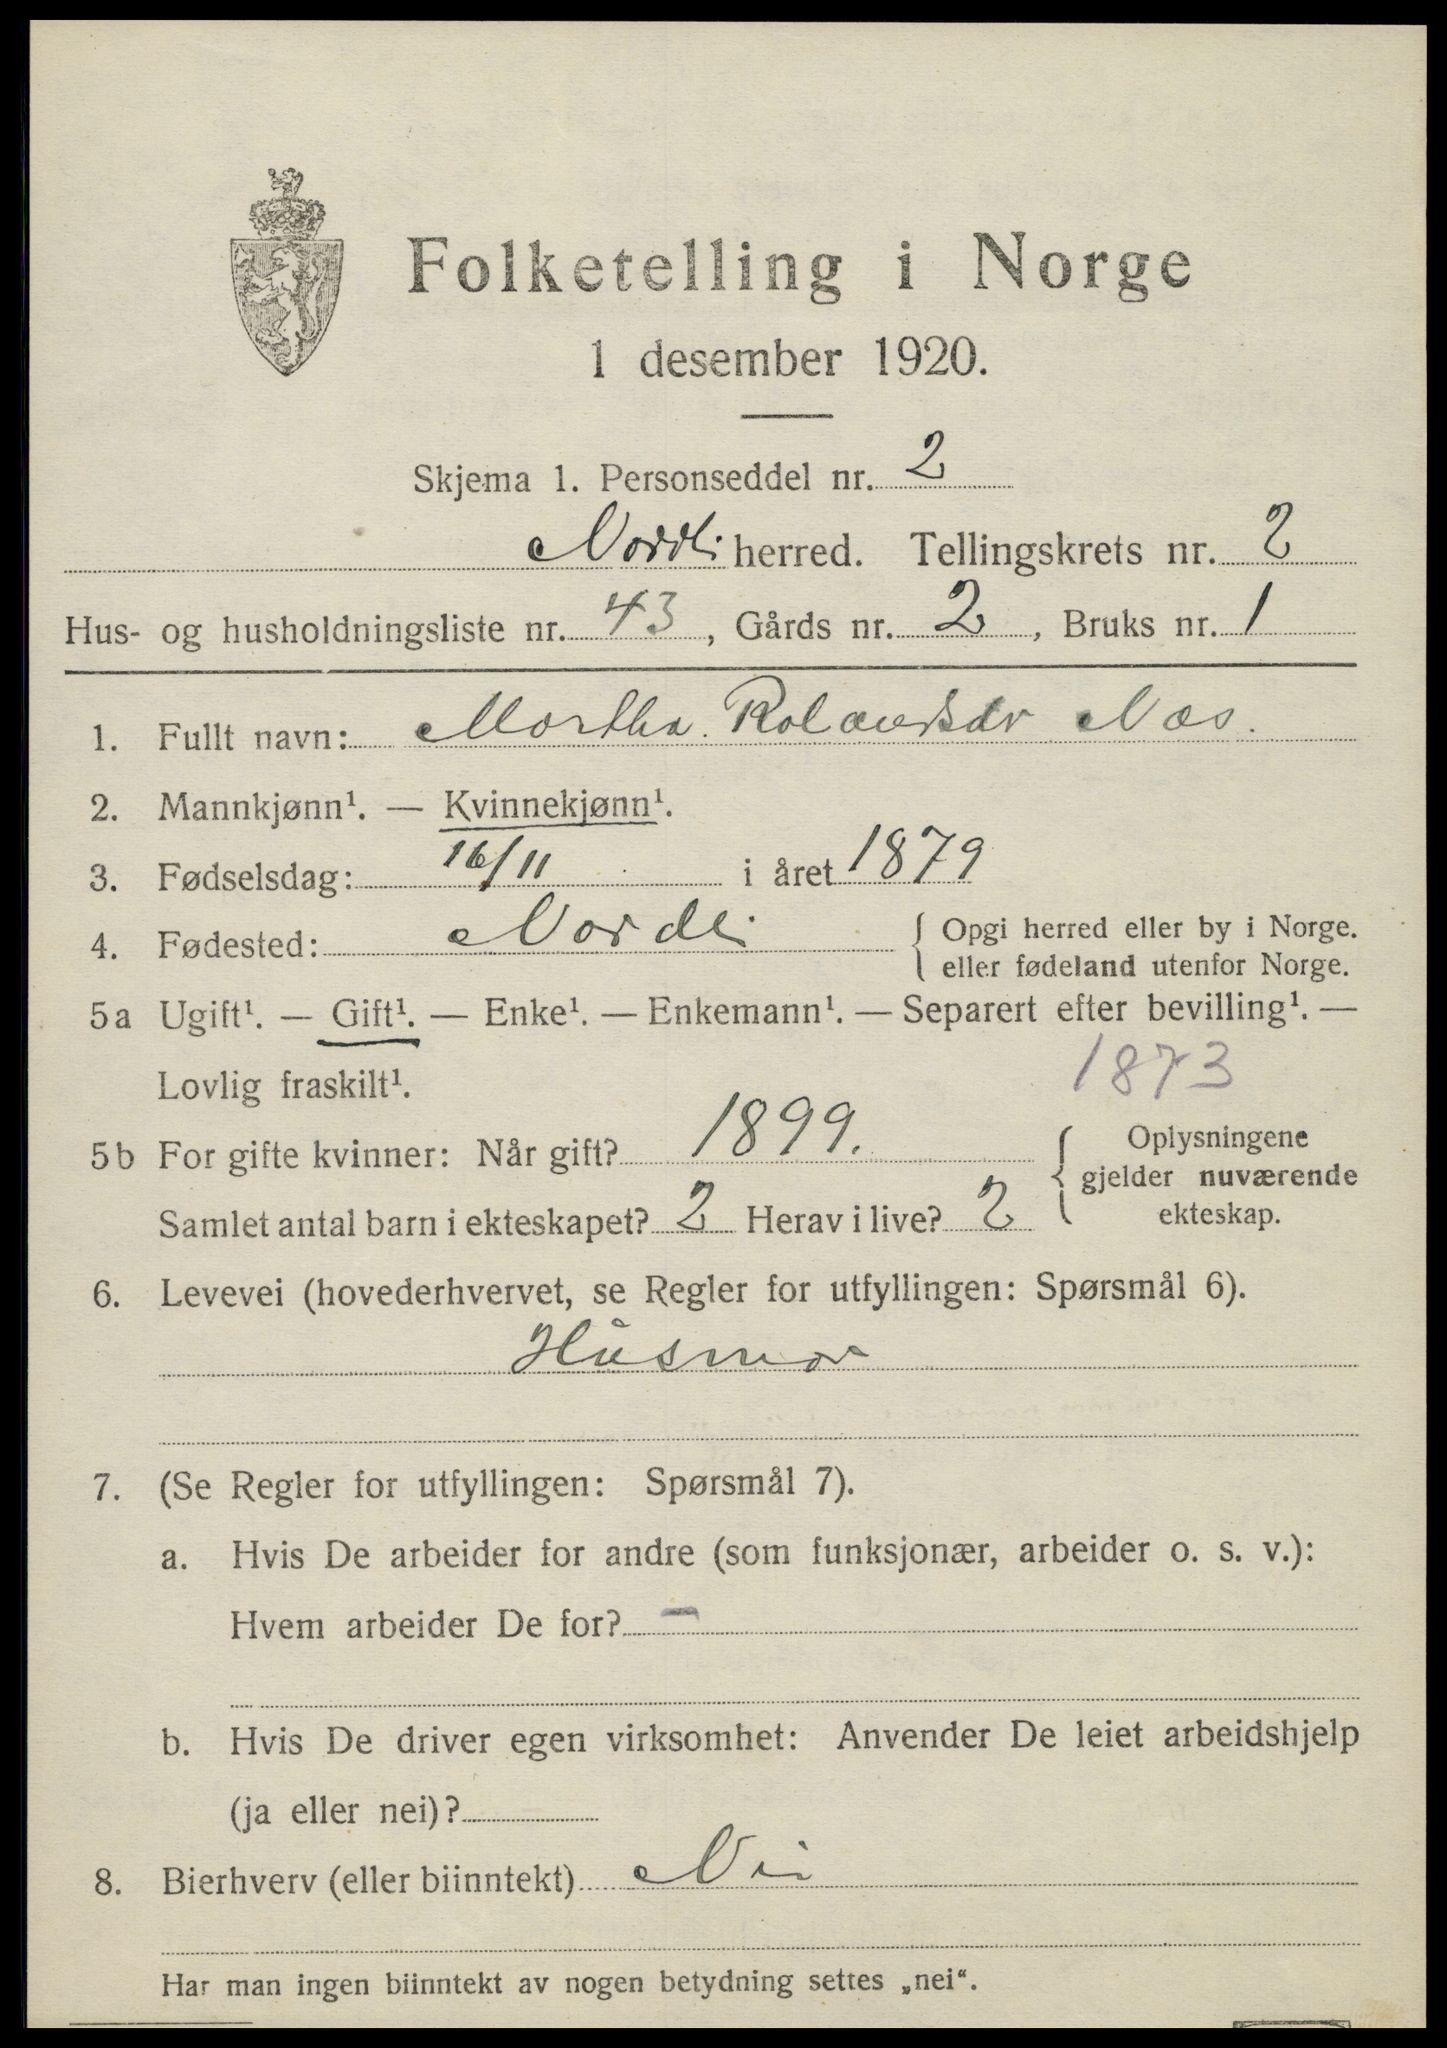 Folketelling i Norge
1 desember 1920.
Skjema 1. Personseddel nr. 2
Nordli herred. Tellingskrets nr. 2
Hus- og husholdningsliste nr. 43, Gårds nr. 2, Bruks nr. 1
1. Fullt navn: Martha Rolandsdr Næs.
2. Mannkjønn¹. — Kvinnekjønn¹.
3. Fødselsdag: 16/11 i året 1879
4. Fødested: Nordli { Opgi herred eller by i Norge.
eller fødeland utenfor Norge.
5a Ugift¹. — Gift¹. — Enke¹. — Enkemann¹. — Separert efter bevilling¹. —
Lovlig fraskilt¹. 1873
5b For gifte kvinner: Når gift? 1899. { Oplysningene
gjelder nuværende
Samlet antal barn i ekteskapet? 2 Herav i live? 2 ekteskap.
6. Levevei (hovederhvervet, se Regler for utfyllingen: Spørsmål 6).
Husmor
7. (Se Regler for utfyllingen: Spørsmål 7).
a. Hvis De arbeider for andre (som funksjonær, arbeider o. s. v.):
Hvem arbeider De for? —
b. Hvis De driver egen virksomhet: Anvender De leiet arbeidshjelp
(ja eller nei)?
8. Bierhverv (eller biinntekt) Nei
Har man ingen biinntekt av nogen betydning settes „nei“.